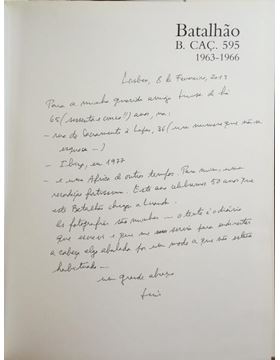 Batalhão
B. CAÇ. 595
1963-1966
Lisboa, 8 de Fevereiro, 2013
Para a minha querida amiga de há
65 (sessenta e cinco!!) anos, na:
- rua do Sacramento à Lapa, 36 (um número que não se
esquece...)
- em 1977
- e uma África de outros tempos. Para mim, uma
recordação fortíssima. Este ano celebramos 50 anos que
este Batalhão chegou a Luanda.
As fotografias são minhas - o texto é o diário
que escrevi e que me servia para endireitar
a cabeça algo abalada por um modo a que não estava
habituado -
um grande abraço